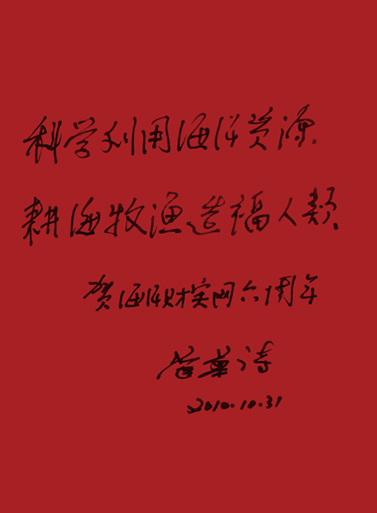 科学利用海洋资源,
耕海牧渔造福人类。
贺海 网六周年
管华诗
2010.10.31